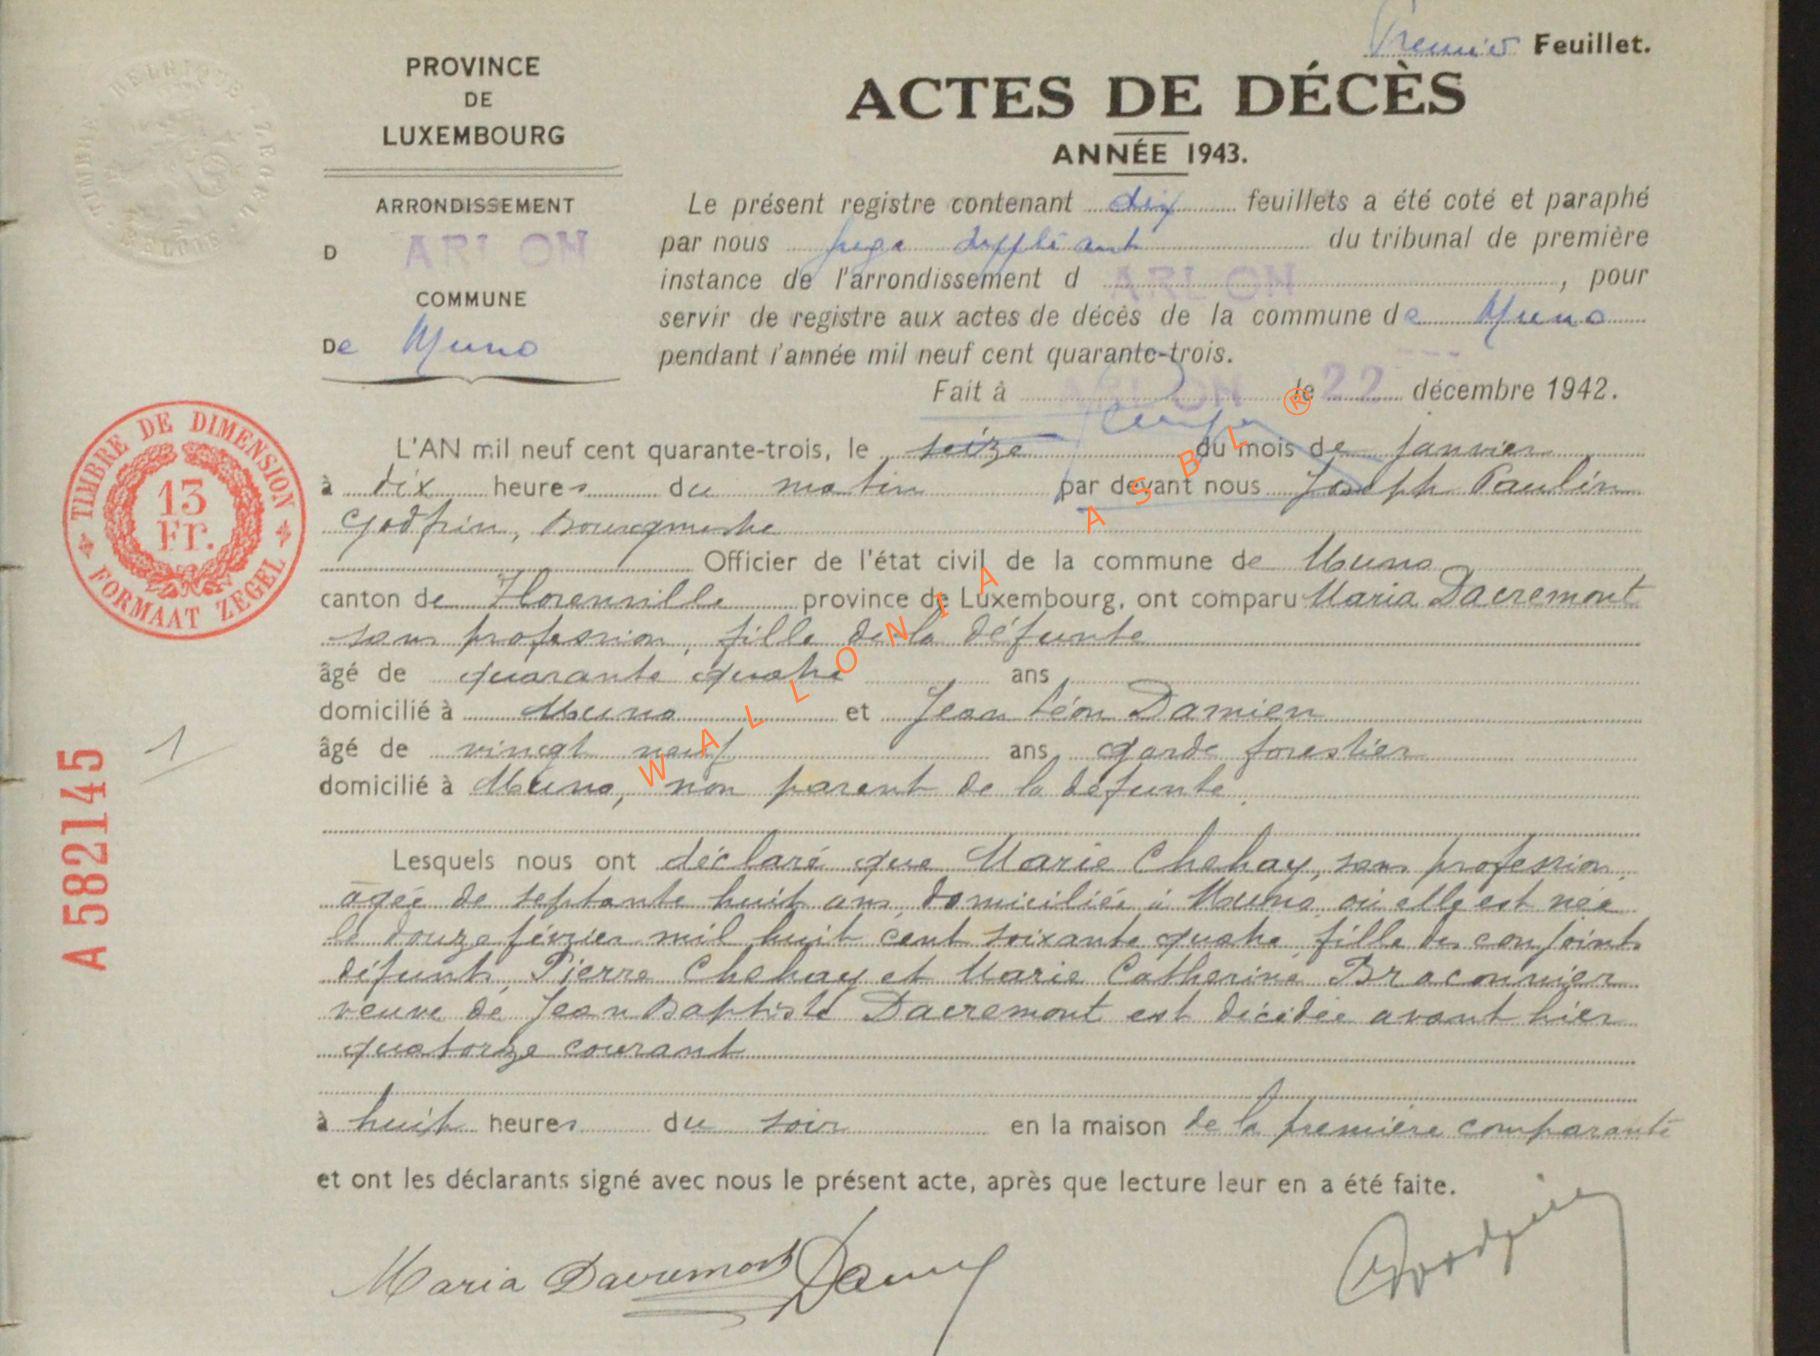 Premier Feuillet.
PROVINCE
DE
LUXEMBOURG
ARRONDISSEMENT
D ARLON
COMMUNE
De Muno
ACTES DE DÉCÈS
ANNÉE 1943.
Le présent registre contenant dix feuillets a été coté et paraphé
par nous juge suppléant du tribunal de première
instance de l'arrondissement d ARLON, pour
servir de registre aux actes de décès de la commune de Muno
pendant l'année mil neuf cent quarante-trois.
Fait à ARLON le 22 décembre 1942.
TIMBRE DE DIMENSION
13
Fr.
FORMAAT ZEGEL
A 582145
1
L'AN mil neuf cent quarante-trois, le seize du mois de janvier
à dix heures du matin par devant nous Joseph Paulin
Godfrin, Bourgmestre
Officier de l'état civil de la commune de Muno
canton de Florenville province de Luxembourg, ont comparu Maria Dacremont
sans profession, fille de la défunte
âgé de quarante quatre ans
domicilié à Muno et Jean Léon Damien
âgé de vingt neuf ans garde forestier
domicilié à Muno, non parent de la défunte.
Lesquels nous ont déclaré que Marie Chehay, sans profession,
âgée de septante huit ans, domiciliée à Muno où elle est née
le douze février mil huit cent soixante quatre, fille des conjoints
défunts Pierre Chehay et Marie Catherine Braconnier
veuve de Jean Baptiste Dacremont est décédée avant hier
quatorze courant
à huit heures du soir en la maison de la première comparante
et ont les déclarants signé avec nous le présent acte, après que lecture leur en a été faite.
Maria Dacremont
WALLONIA ASBL ®